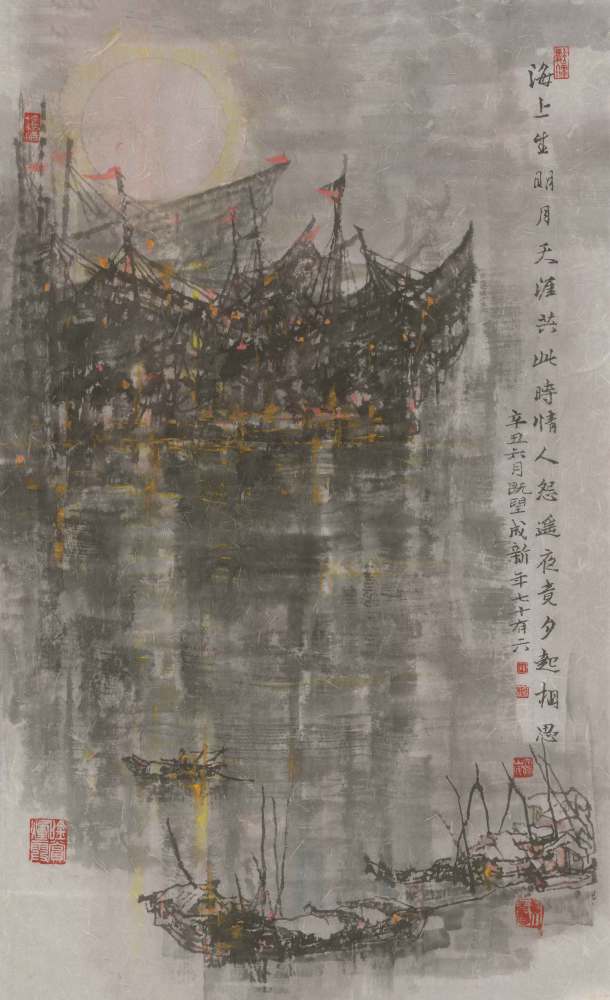 海上生明月天涯共此時情人怨遥夜竟夕起相思
辛丑六月既望成新年七十有六